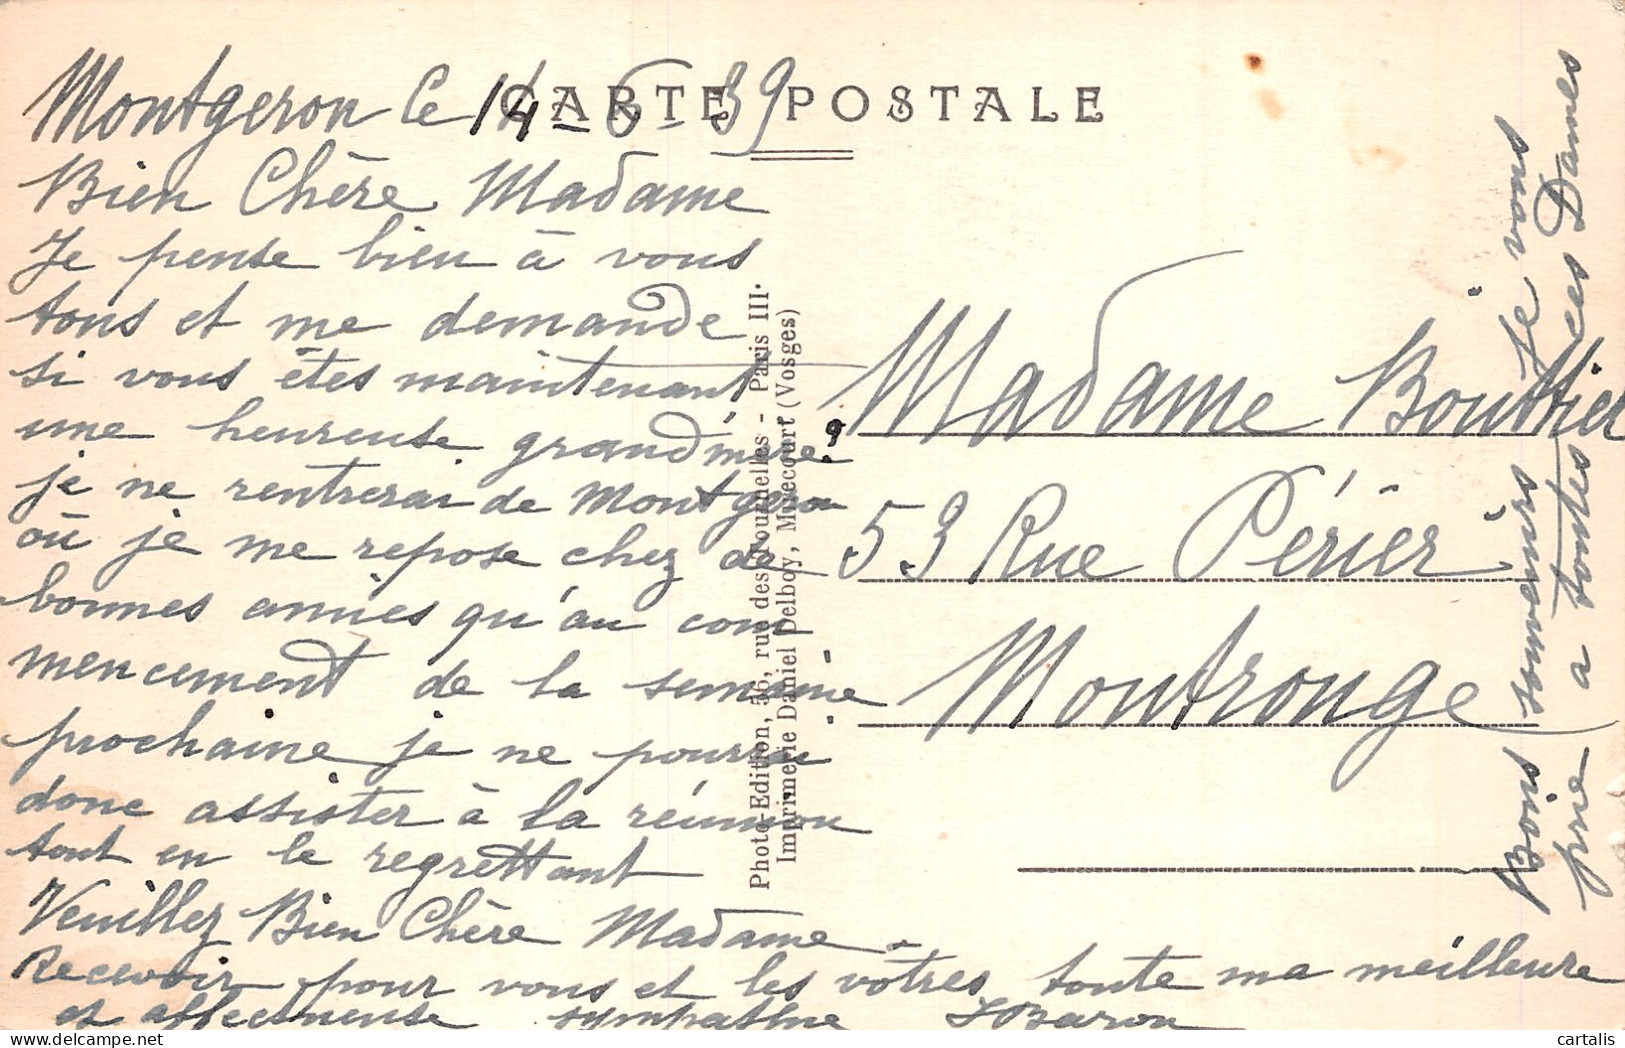 CARTE POSTALE
Montgeron Ce 14-6-39
Bien Chère Madame
Je pense bien à vous
tous et me demande
si vous êtes maintenant
une heureuse grand'mère ?
je ne rentrerai de Montgeron
où je me repose chez de
bonnes amies qu'au com
mencement de la semaine
prochaine je ne pourrai
donc assister à la réunion
tout en le regrettant
Veuillez Bien Chère Madame
Recevoir pour vous et les vôtres toute ma meilleure
et affectueuse sympathie Baron
Madame Bouttier
53 Rue Périer
Montrouge
Bons souvenirs je vous
prie a toutes ces Dames
Photo-Edition, 56, rue des Tournelles - Paris III.
Imprimerie Daniel Delboy, Mirecourt (Vosges)
cartalis
delcampe.net